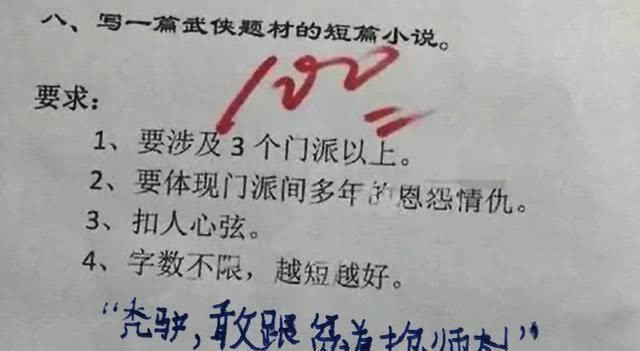 八、写一篇武侠题材的短篇小说。
100
要求：
1、要涉及 3 个门派以上。
2、要体现门派间多年的恩怨情仇。
3、扣人心弦。
4、字数不限，越短越好。
“秃驴，敢跟贫道抢师太”